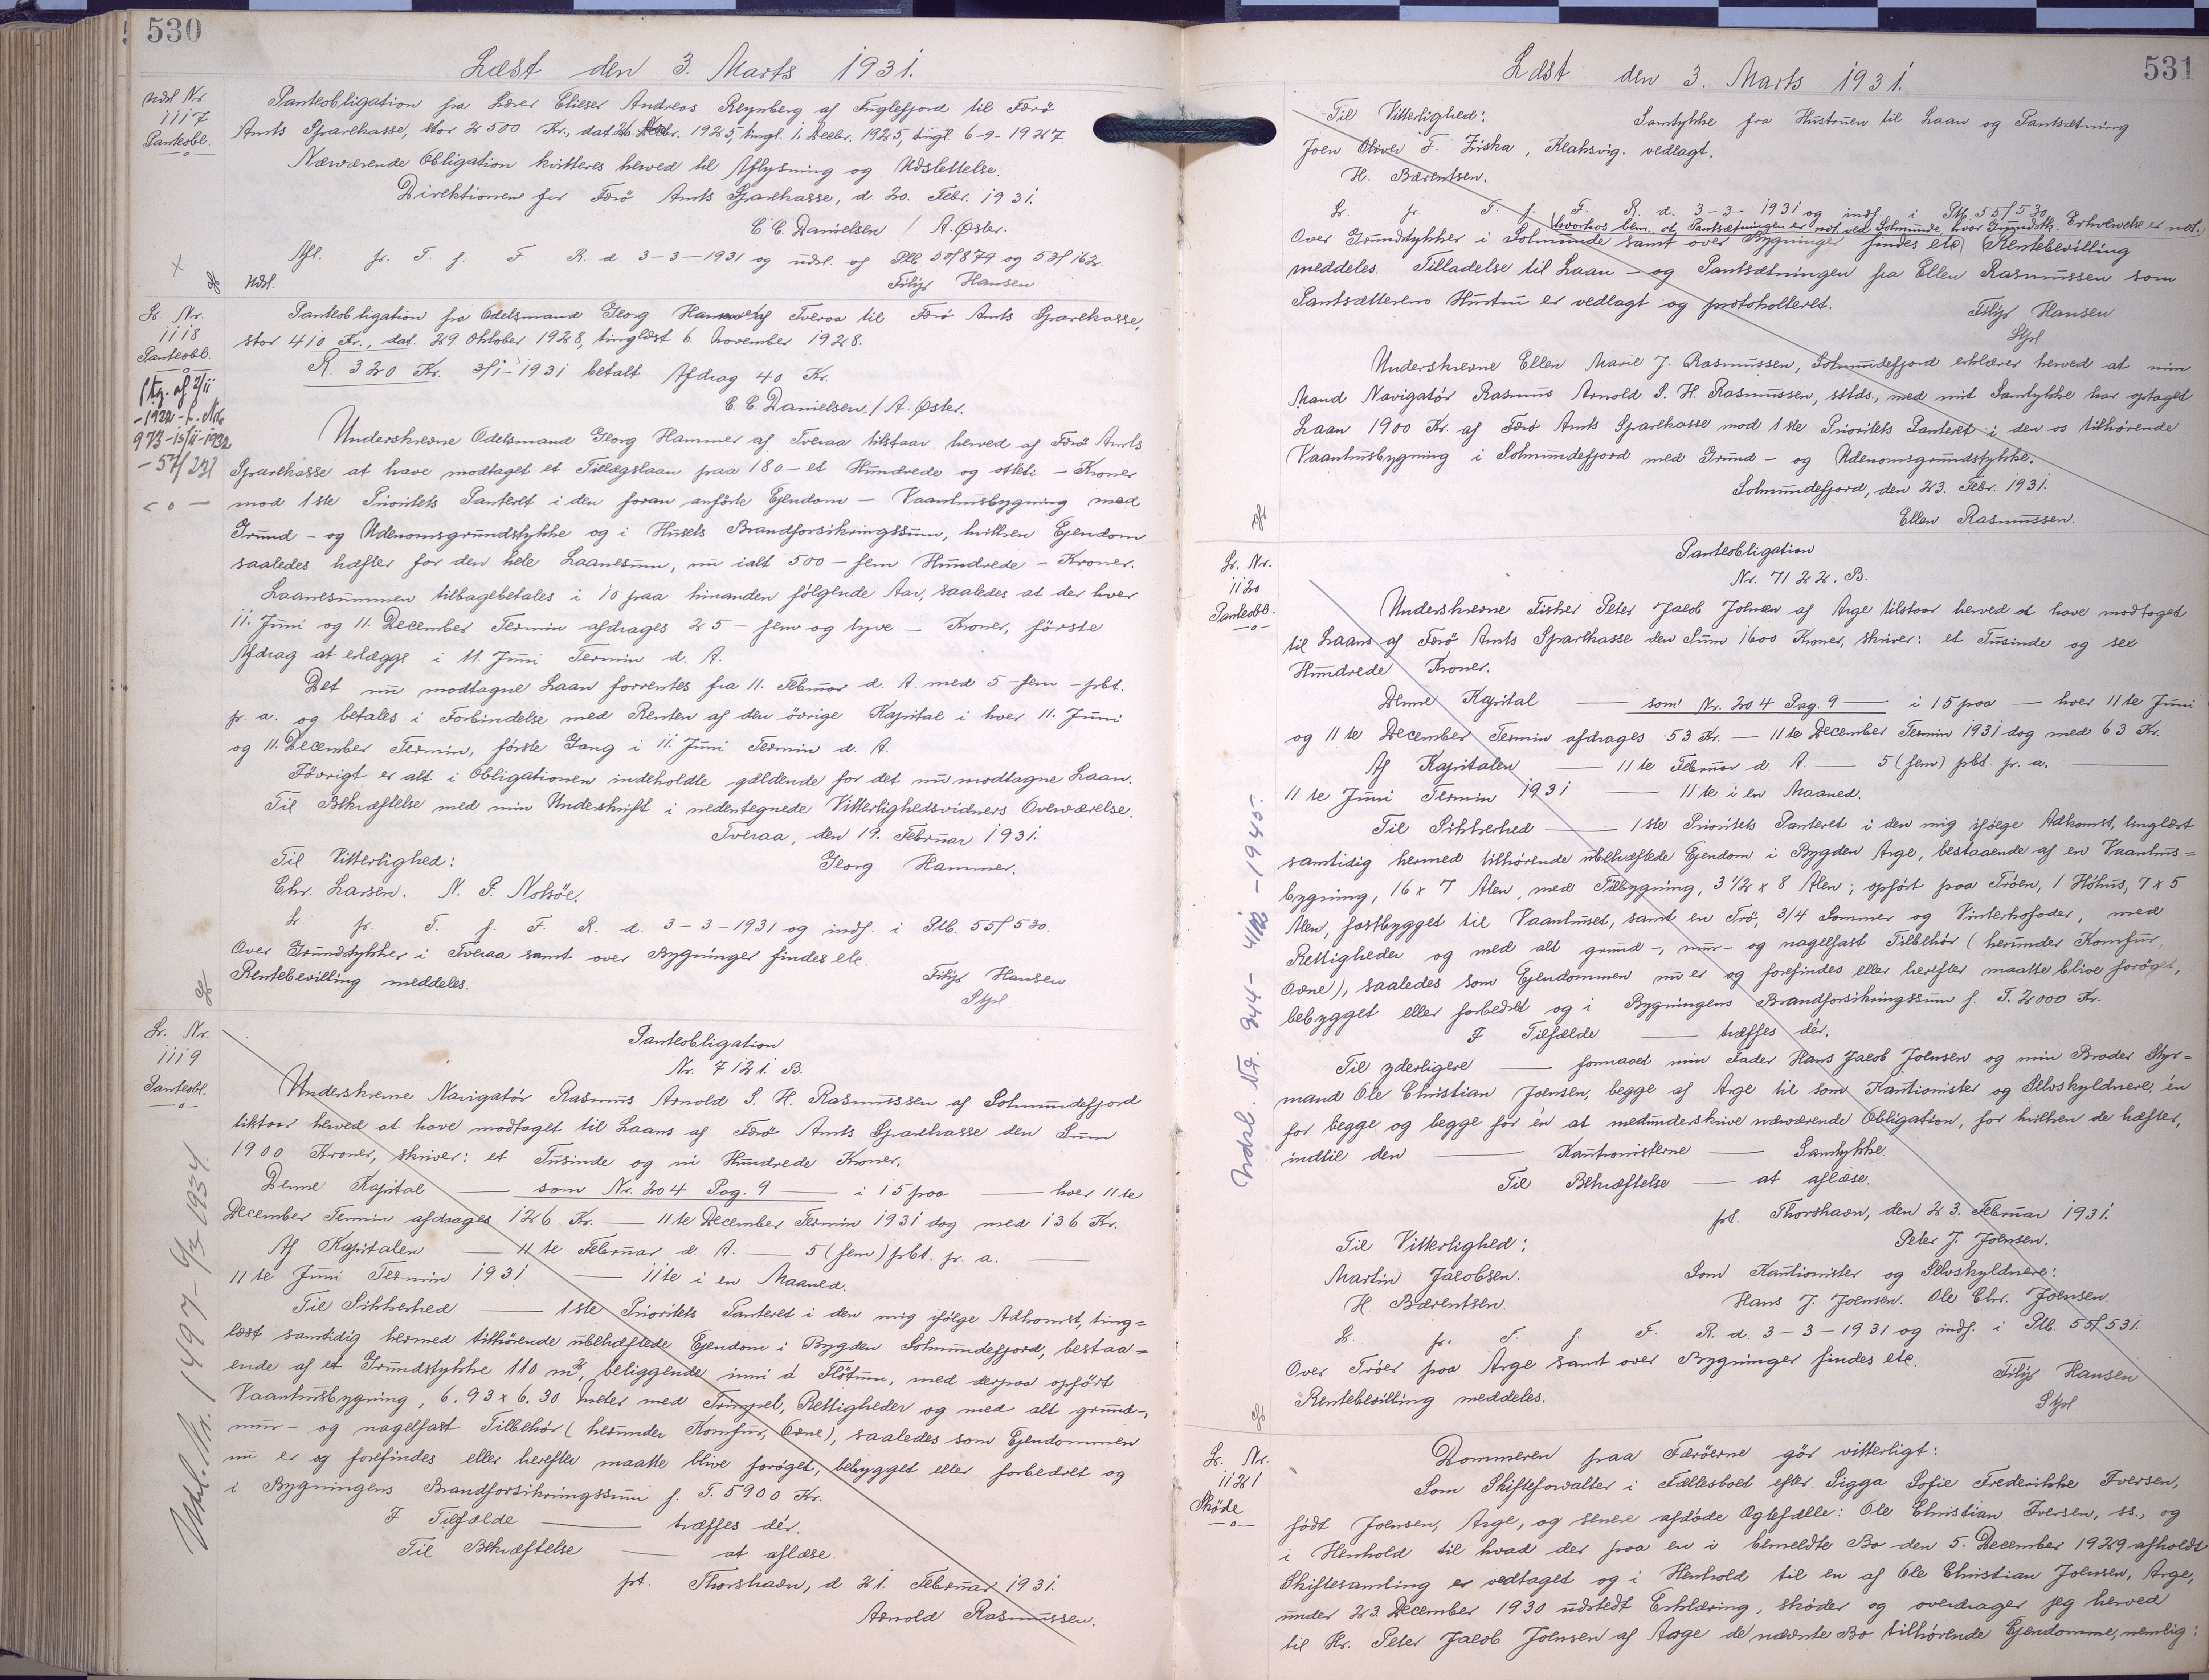 530
Læst den 3. Marts 1931.
Udsl. Nr.
1117
Panteobl.
Panteobligation fra Lærer Elieser Andreas Reynberg af Fuglefjord til Færø
Amts Sparekasse, stor 2500 Kr., dat. 26. Novbr. 1925, tingl. 1. Decbr. 1925, tingl. 6-9-1927.
Nærværende Obligation kvitteres herved til Aflysning og Udslettelse.
Direktionen for Færø Amts Sparekasse, d. 20. Febr. 1931.
C. C. Danielsen / A. Øster.
Afl. pr. T. f. F. R. d. 3-3-1931 og udsl. af Ptb. 50/879 og 52/162.
Udsl.
Filip Hansen
Lr. Nr.
1118
Panteobl.
Panteobligation fra Odelsmand Georg Hammer af Tveraa til Færø Amts Sparekasse,
stor 410 Kr., dat. 29. Oktober 1928, tinglæst 6. November 1928.
R. 320 Kr. 3/1-1931 betalt Afdrag 40 Kr.
C. C. Danielsen. / A. Øster.
973-15/11-1932
Underskrevne Odelsmand Georg Hammer af Tveraa tilstaar herved af Færø Amts
Sparekasse at have modtaget et Tillægslaan paa 180 - et Hundrede og otteti - Kroner
mod 1ste Prioritets Panteret i den foran anførte Ejendom - Vaanhusbygning med
Grund- og Udenomsgrundstykke og i Husets Brandforsikringssum, hvilken Ejendom
saaledes hæfter for den hele Laanesum, nu ialt 500 - fem Hundrede - Kroner.
Laanesummen tilbagebetales i 10 paa hinanden følgende Aar, saaledes at der hver
11. Juni og 11. December Termin afdrages 25 - fem og tyve - Kroner, første
Afdrag at erlægge i 11. Juni Termin d. A.
Det nu modtagne Laan forrentes fra 11. Februar d. A. med 5 - fem - pCt.
p. a. og betales i Forbindelse med Renten af den øvrige Kapital i hver 11. Juni
og 11. December Termin, første Gang i 11. Juni Termin d. A.
Iøvrigt er alt i Obligationen indeholdte gældende for det nu modtagne Laan.
Til Bekræftelse med min Underskrift i nedentegnede Vitterlighedsvidners Overværelse.
Tveraa, den 19. Februar 1931.
Til Vitterlighed: Georg Hammer.
Chr. Larsen. N. P. Nolsøe.
L. pr. T. f. F. R. d. 3-3-1931 og indf. i Ptb. 55/530.
Over Grundstykker i Tveraa samt over Bygninger findes etc.
Rentebevilling meddeles. Filip Hansen
Stpl
Lr. Nr.
1119
Panteobl.
Panteobligation
Nr. 7121. B.
Underskrevne Navigatør Rasmus Arnold S. H. Rasmussen af Solmundefjord
tilstaar herved at have modtaget til Laans af Færø Amts Sparekasse den Sum
1900 Kroner, skriver: et Tusinde og ni Hundrede Kroner.
Denne Kapital — som Nr. 204 Pag. 9 — i 15 paa — hver 11te
December Termin afdrages 126 Kr. — 11te December Termin 1931 dog med 136 Kr.
Af Kapitalen — 11te Februar d. A. — 5 (fem) pCt. p. a. —
11te Juni Termin 1931 — 11te i en Maaned.
Til Sikkerhed — 1ste Prioritets Panteret i den mig ifølge Adkomst, ting=
læst samtidig hermed tilhørende ubehæftede Ejendom i Bygden Solmundefjord, bestaa=
ende af et Grundstykke 110 m², beliggende inni á Fløtum, med derpaa opført
Vaanhusbygning, 6.93 x 6.30 Meter med Trimpel, Rettigheder og med alt grund-,
mur- og nagelfast Tilbehør (herunder Komfur, Ovne), saaledes som Ejendommen
nu er og forefindes eller herefter maatte blive forøget, bebygget eller forbedret og
i Bygningens Brandforsikringssum f. T. 5900 Kr.
I Tilfælde — træffes dér.
Til Bekræftelse — at aflæse.
pt. Thorshavn, d. 21. Februar 1931.
Arnold Rasmussen.
531
Læst den 3. Marts 1931.
Til Vitterlighed: Samtykke fra Hustruen til Laan og Pantsætning
Joen Oliver F. Ziska, Klaksvig. vedlagt.
H. Bærentsen.
L. pr. T. f. F. R. d. 3-3-1931 og indf. i Ptb. 55/530
hvorhos bem. at Pantsætningen er not. ved Solmunde, hvor Grundstk. Erhvervelse er not.
Over Grundstykker i Solmunde samt over Bygninger findes etc. Rentebevilling
meddeles. Tilladelse til Laan- og Pantsætningen fra Ellen Rasmussen som
Pantsætterens Hustru er vedlagt og protokolleret.
Filip Hansen
Stpl
Underskrevne Ellen Marie J. Rasmussen, Solmundefjord erklærer herved at min
Mand Navigatør Rasmus Arnold S. H. Rasmussen, sstds., med mit Samtykke har optaget
Laan 1900 Kr. af Færø Amts Sparekasse mod 1ste Prioritets Panteret i den os tilhørende
Vaanhusbygning i Solmundefjord med Grund- og Udenomsgrundstykke.
Solmundefjord, den 23. Febr. 1931.
Ellen Rasmussen.
Lr. Nr.
1120
Panteobl.
Panteobligation
Nr. 7122. B.
Underskrevne Fisker Peter Jacob Joensen af Arge tilstaar herved at have modtaget
til Laans af Færø Amts Sparekasse den Sum 1600 Kroner, skriver: et Tusinde og sex
Hundrede Kroner.
Denne Kapital — som Nr. 204 Pag. 9 — i 15 paa — hver 11te Juni
og 11te December Termin afdrages 53 Kr. — 11te December Termin 1931 dog med 63 Kr.
Af Kapitalen — 11te Februar d. A. — 5 (fem) pCt. p. a. —
11te Juni Termin 1931 — 11te i en Maaned.
Til Sikkerhed — 1ste Prioritets Panteret i den mig ifølge Adkomst, tinglæst
samtidig hermed tilhørende ubehæftede Ejendom i Bygden Arge, bestaaende af en Vaanhus=
bygning, 16 x 7 Alen, med Tilbygning, 3 1/2 x 8 Alen, opført paa Trøen, 1 Høhus, 7 x 5
Alen, fastbygget til Vaanhuset, samt en Trø, 3/4 Sommer og Vinterhofoder, med
Rettigheder og med alt grund-, mur- og nagelfast Tilbehør (herunder Komfur,
Ovne), saaledes som Ejendommen nu er og forefindes eller herefter maatte blive forøget,
bebygget eller forbedret og i Bygningens Brandforsikringssum f. T. 2000 Kr.
I Tilfælde — træffes dér.
Til yderligere — formaaet min Fader Hans Jacob Joensen og min Broder Styr=
mand Ole Christian Joensen, begge af Arge til som Kautionister og Selvskyldnere, én
for begge og begge for én at medunderskrive nærværende Obligation, for hvilken de hæfter,
indtil den — Kautionisterne — Samtykke
Til Bekræftelse — at aflæse.
pt. Thorshavn, den 23. Februar 1931.
Til Vitterlighed: Peter J. Joensen.
Martin Jacobsen. Som Kautionister og Selvskyldnere:
H. Bærentsen. Hans J. Joensen. Ole Chr. Joensen.
L. pr. T. f. F. R. d. 3-3-1931 og indf. i Ptb. 55/531.
Over Trøer paa Arge samt over Bygninger findes etc.
Rentebevilling meddeles. Filip Hansen
Stpl
Lr. Nr.
1121
Skøde
Dommeren paa Færøerne gør vitterligt:
Som Skifteforvalter i Fællesboet efter Sigga Sofie Frederikke Iversen,
født Joensen, Arge, og senere afdøde Ægtefælle: Ole Christian Iversen, ss., og
i Henhold til hvad der paa en i bemeldte Bo den 5. December 1929 afholdt
Skiftesamling er vedtaget og i Henhold til en af Ole Christian Joensen, Arge,
under 23. December 1930 udstedt Erklæring, skøder og overdrager jeg herved
til Hr. Peter Jacob Joensen af Arge de nævnte Bo tilhørende Ejendomme, nemlig: